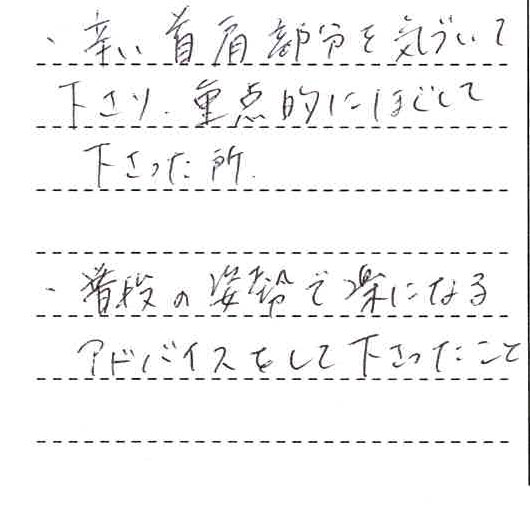 ・辛い首肩部分を気づいて
下さり、重点的にほぐして
下さった所.
・普段の姿勢で楽になる
アドバイスをして下さったこと